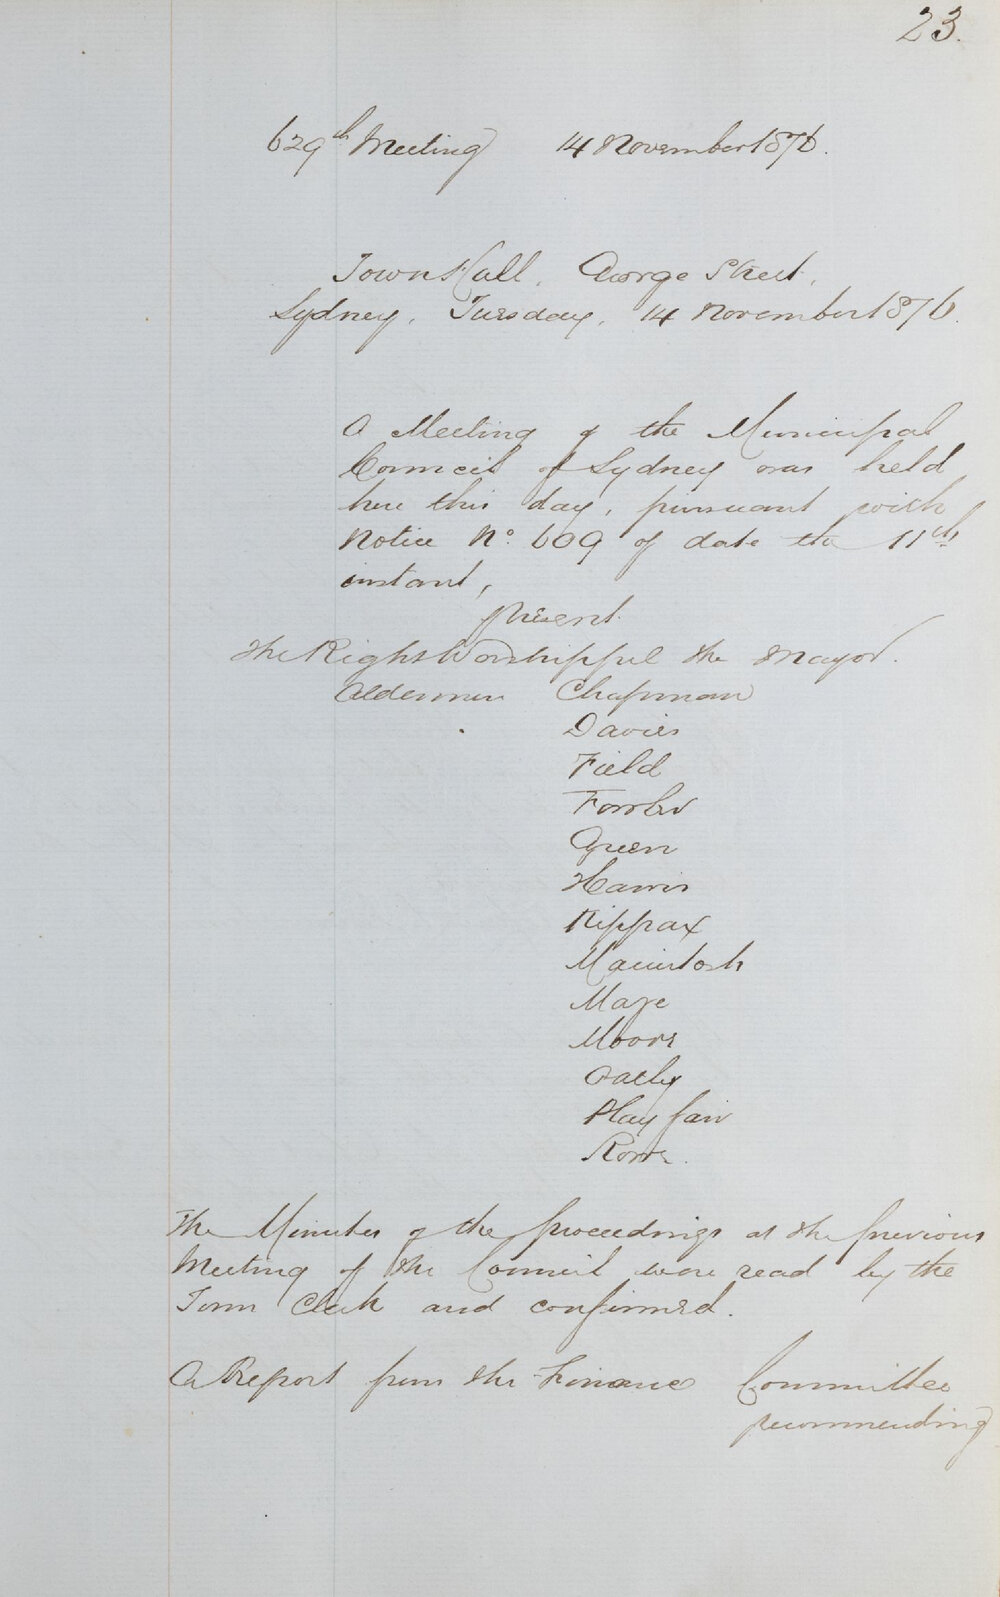 23.
629th Meeting 14 November 1876.
Town Hall, George Street,
Sydney, Tuesday, 14 November 1876.
A Meeting of the Municipal
Council of Sydney was held
here this day, pursuant with
Notice No. 609 of date the 11th
instant,
present
The Right Worshipful the Mayor.
Aldermen Chapman
Davies
Field
Fowler
Green
Harris
Kippax
Macintosh
Maze
Moore
Oatley
Playfair
Rowe.
The Minutes of the proceedings at the previous
Meeting of the Council were read by the
Town Clerk and confirmed.
A Report from the Finance Committee
recommending